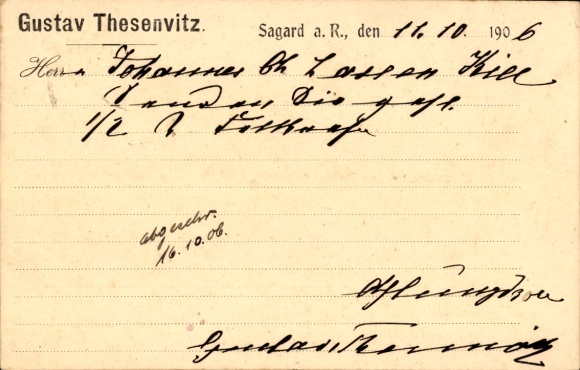 Gustav Thesenvitz.
Sagard a. R., den 11. 10. 1906
Herrn Johannes Ch Lassen Kiel
Senden Sie gefl.
1/2
abgeschr.
16.10.06.
Gustav Thesenvitz